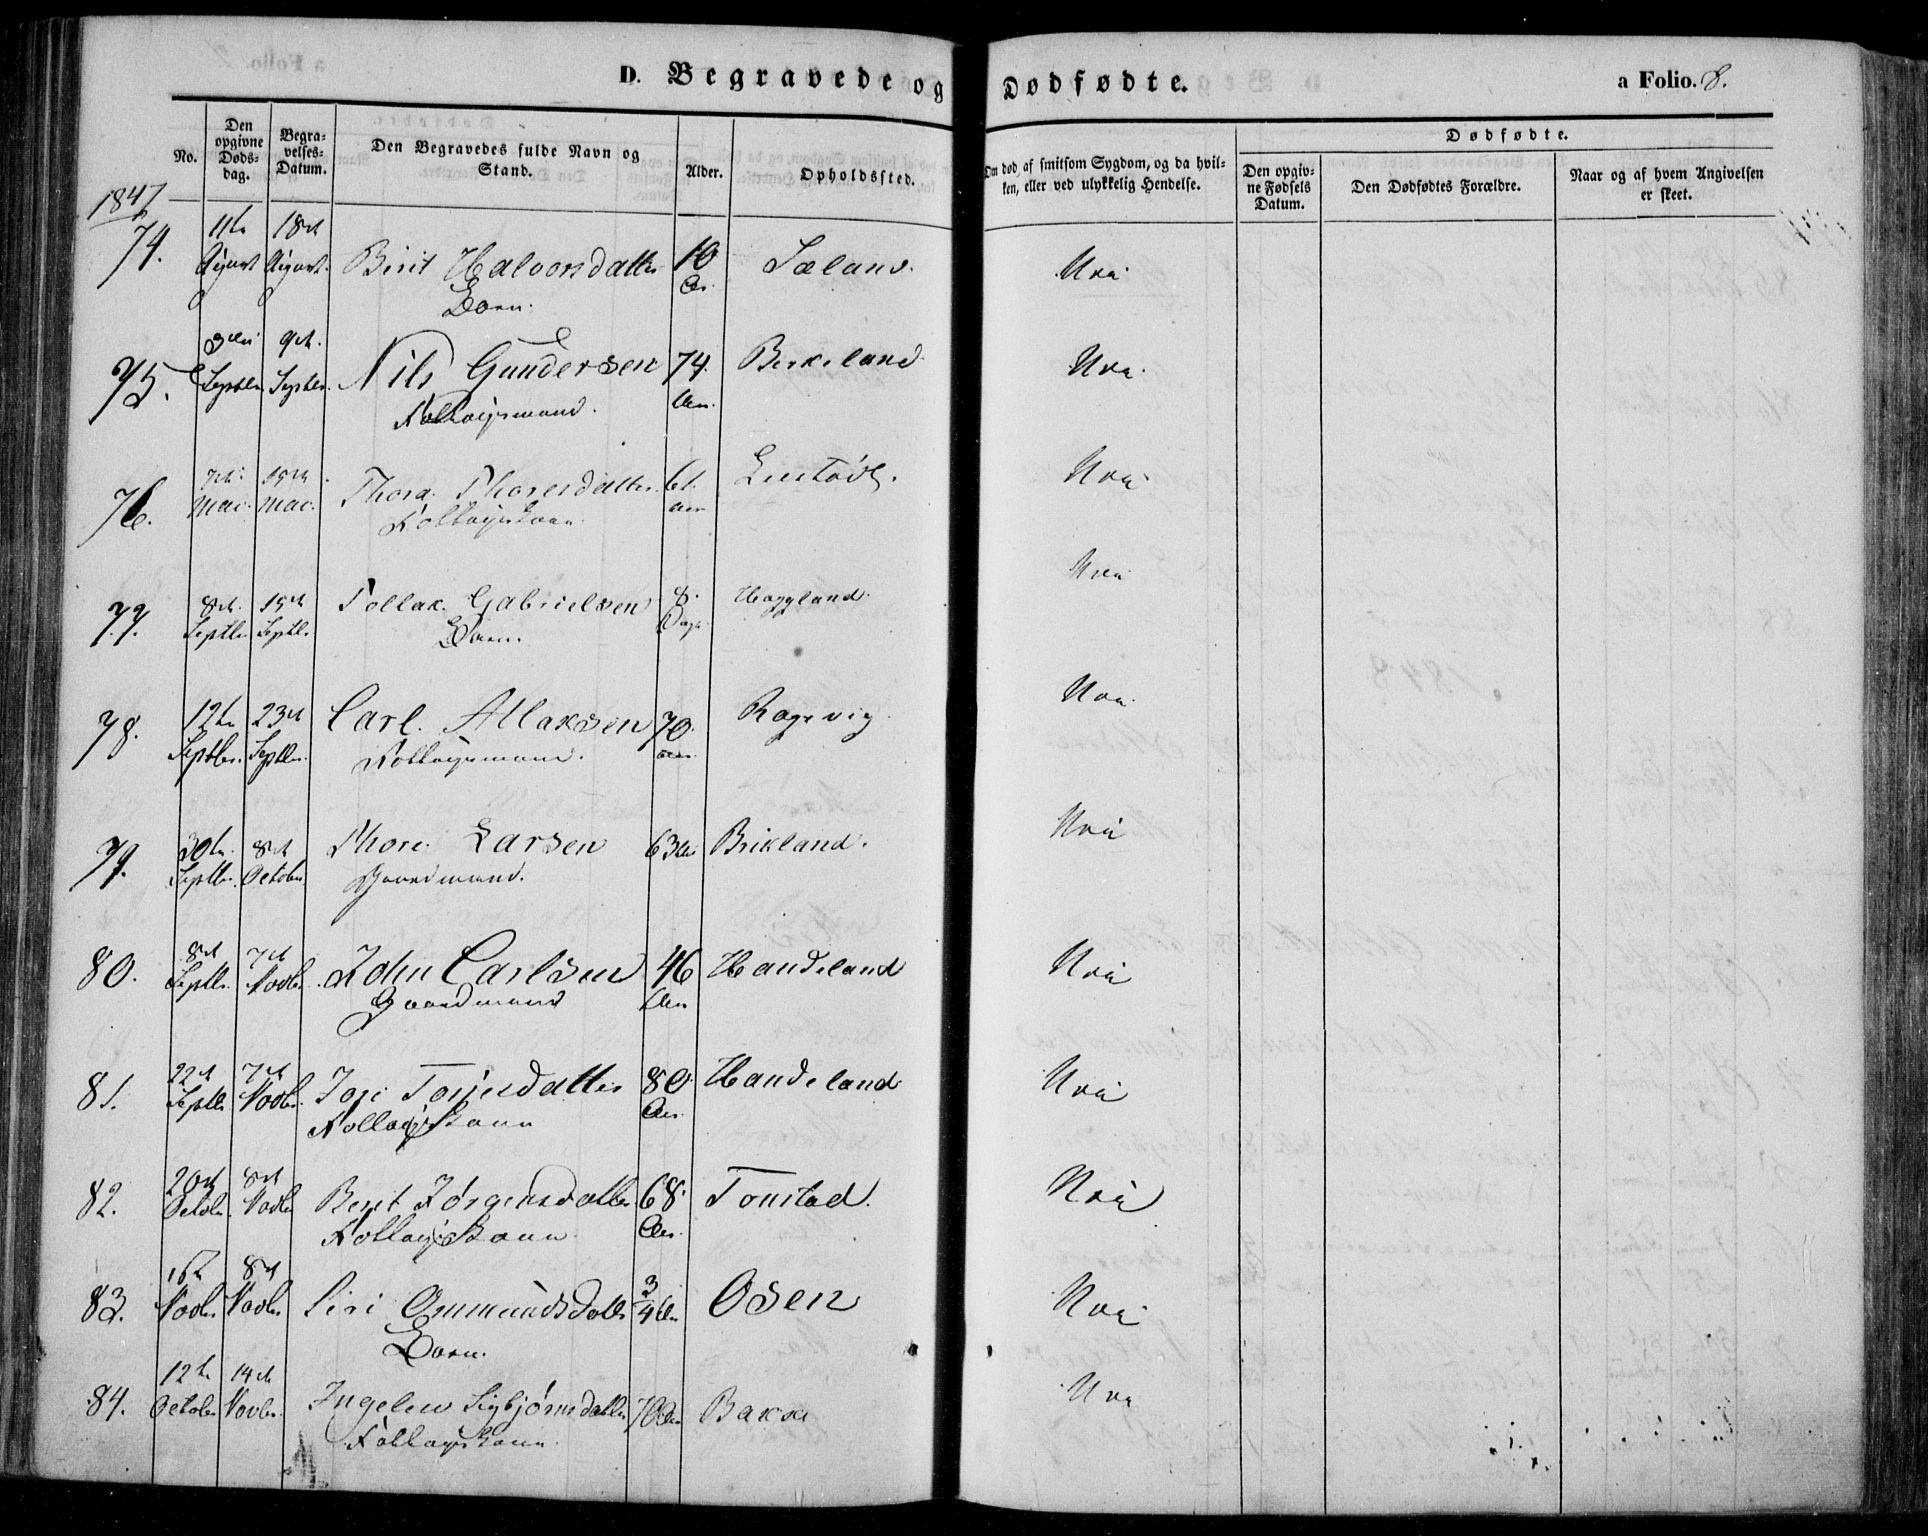 D. Begravede og Dødfødte.
a Folio. 8.
No.
Den opgivne Døds-dag.
Begra-velses-Datum.
Den Begravedes fulde Navn og Stand.
Alder.
Opholdssted.
Om død af smitsom Sygdom, og da hvil-ken, eller ved ulykkelig Hendelse.
Dødfødte.
Den opgiv-ne Fødsels Datum.
Den Dødfødtes Forældre.
Naar og af hvem Angivelsen er skeet.
1847
74. 11te August 18de August. Berit Halvorsdatter 10 Aar. Sæland. Nei
Barn.
75. 3die Septbr. 9de Septbr. Nils Gundersen 74. Aar. Birkeland Nei
Kollaugsmand.
76. 7de Mai. 15de Mai. Thora Thoresdatter 61. Aar Nei
77. 8de Septbr. 15de Septbr. Tollak Gabrielsen 8. Dage Haugland. Nei
Barn.
78. 12te Septbr. 23de Septbr. Carl. Atlaksen 70. Aar. Ragevig Nei
79. 30te Septbr. 8de October Thore Larsen 63 Aar Birkland. Nei
Gaardmand.
80. 8de Septbr. 7de Novbr. John Carlsen 46 Aar Handeland Nei
Gaardmand
81. 22de Septbr 7de Novbr. Tori Torjesdatter 80. Aar. Handeland Nei
82. 20de October. 8de Novbr Berit Jørgensdatter 68. Aar. Tonstad. Nei
83. Novbr 8de Novbr Siri Ommundsdatter 3/4 Aar Osen Nei
Barn.
84. 12te October 14de Novbr. Ingeleiv Sigbjørnsdatter 70 Aar Bakke Nei